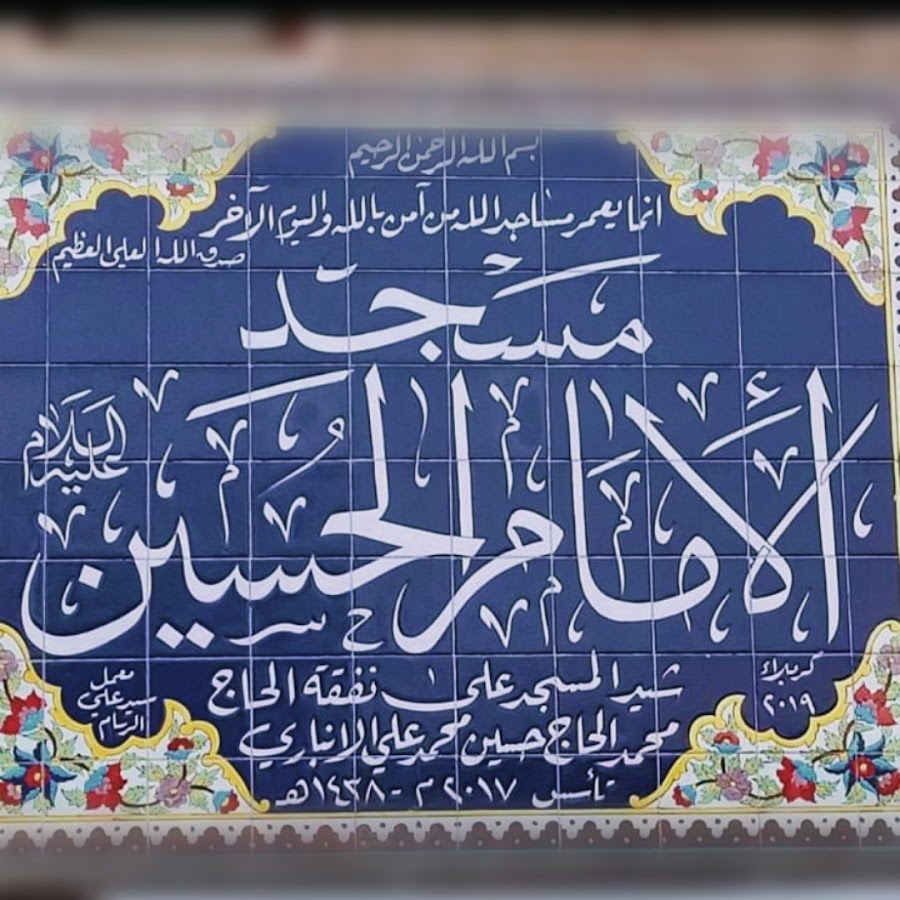 بسم الله الرحمن الرحيم
انما يعمر مساجد الله من آمن بالله واليوم الآخر
صدق الله العلي العظيم
مسجد
الأمام الحسين
عليه السلام
شيد المسجد على نفقة الحاج
محمد الحاج حسين محمد علي الانباري
تأسس ٢٠١٧ م - ١٤٣٨ هـ
كربلاء
٢٠١٩
معمل
سيد علي
الرسام